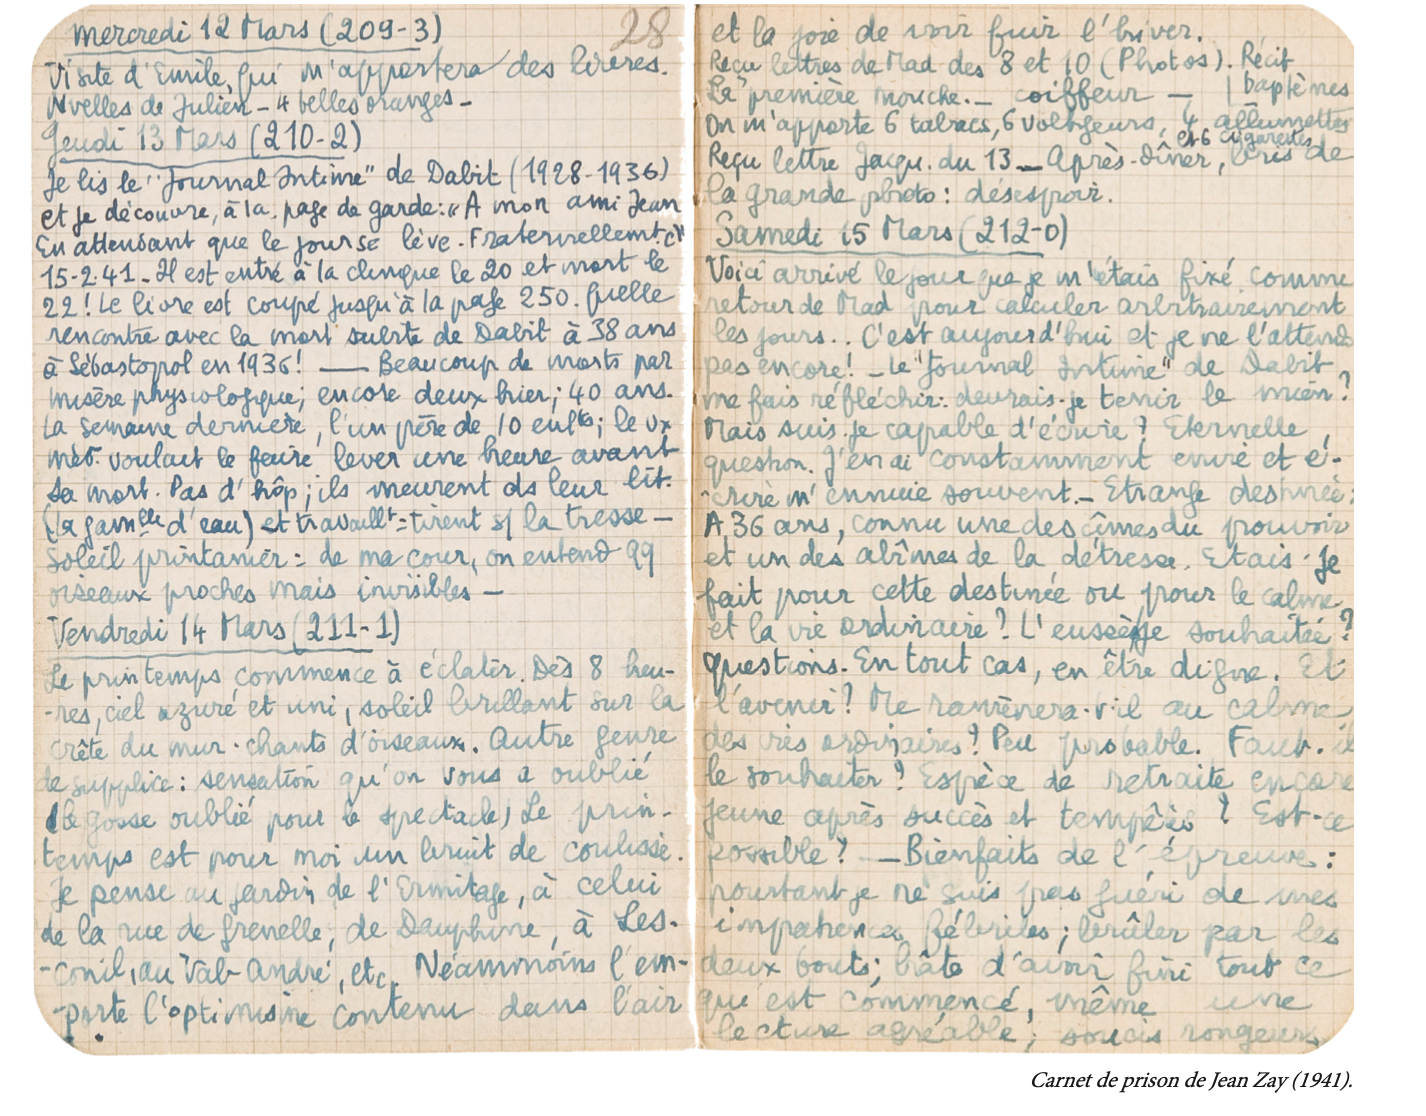 mercredi 12 Mars (209-3)
28
Visite d'Emile, qui m'apportera des livres.
Nvelles de Julien - 4 belles oranges -
Jeudi 13 Mars (210-2)
Je lis le "Journal Intime" de Dabit (1928-1936)
et je découvre, à la page de garde: "A mon ami Jean
En attendant que le jour se lève. Fraternellemt
15-2-41 - Il est entré à la clinique le 20 et mort le
22! Le livre est coupé jusqu'à la page 250. Quelle
rencontre avec la mort subite de Dabit à 38 ans
à Sébastopol en 1936! — Beaucoup de morts par
misère physiologique; encore deux hier; 40 ans.
La semaine dernière, l'un père de 10 enfts; le vx
voulait le faire lever une heure avant
sa mort. Pas d'hôp; ils meurent ds leur lit.
(la gamelle d'eau) et travaillt = tirent s/ la tresse —
Soleil printanier = de ma cour, on entend qq
oiseaux proches mais invisibles —
Vendredi 14 Mars (211-1)
Le printemps commence à éclater. Dès 8 heu-
-res, ciel azuré et uni, soleil brillant sur la
crête du mur. chants d'oiseaux. Autre genre
de supplice: sensation qu'on vous a oublié
(le gosse oublié pour le spectacle) Le prin-
temps est pour moi un bruit de coulisse.
Je pense au jardin de l'Ermitage, à celui
de la rue de Grenelle, de Dauphine, à Les-
-conil, au Val-André, etc. Néammoins l'em-
-porte l'optimisme contenu dans l'air
et la joie de voir fuir l'hiver.
Reçu lettres de Mad des 8 et 10 (Photos). Récit
baptèmes
La première mouche. — coiffeur —
On m'apporte 6 tabacs, 6 voltigeurs, 4 allumettes
et 6 cigarettes
Reçu lettre Jacqu. du 13 — Après-dîner, bris de
la grande photo: désespoir.
Samedi 15 Mars (212-0)
Voici arrivé le jour que je m'étais fixé comme
retour de Mad pour calculer arbitrairement
les jours.. C'est aujourd'hui et je ne l'attends
pas encore! - Le "Journal Intime" de Dabit
me fais réfléchir: devrais-je tenir le mien?
Mais suis-je capable d'écrire? Eternelle
question. J'en ai constamment envie et é-
-crire m'ennuie souvent. - Etrange destinée:
A 36 ans, connu une des cîmes du pouvoir
et un des abîmes de la détresse. Etais-je
fait pour cette destinée ou pour le calme
et la vie ordinaire? L'eussè-je souhaitée?
questions. En tout cas, en être digne. Et
l'avenir? Me ramènera-t-il au calme
des vies ordinaires? Peu probable. Faut-il
le souhaiter? Espèce de retraite encore
jeune après succès et tempêtes? Est-ce
possible? — Bienfaits de l'épreuve:
pourtant je ne suis pas guéri de mes
impatiences fébriles; brûler par les
deux bouts; hâte d'avoir fini tout ce
qui est commencé, même une
lecture agréable; soucis rongeurs
Carnet de prison de Jean Zay (1941).